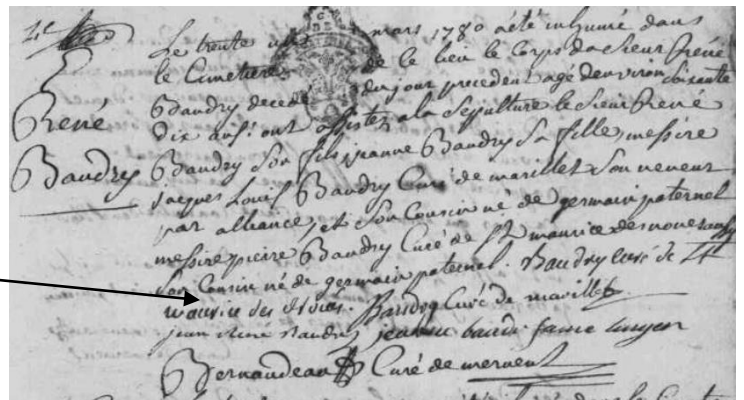 Le trente mars 1780 a été inhumé dans
le Cimetiere de ce lieu le Corps du Sieur René
René
Baudry decedé du jour precedent agé denviron Soixante
Dix ans, ont assisté a la Sepulture le Sieur René
Baudry
Baudry Son fils, jeanne Baudry Sa fille, messire
jacques Louis Baudry Curé de marillet Son neveu
par alliance, et Son Cousin né de germain paternel
messire pierre Baudry Curé de St maurice des noues aussy
Son Cousin né de germain paternel. Baudry curé de St
maurice des noues. Baudry Curé de marillet
jean René Baudry jeanne baudri
Bernaudeau Curé de mervent